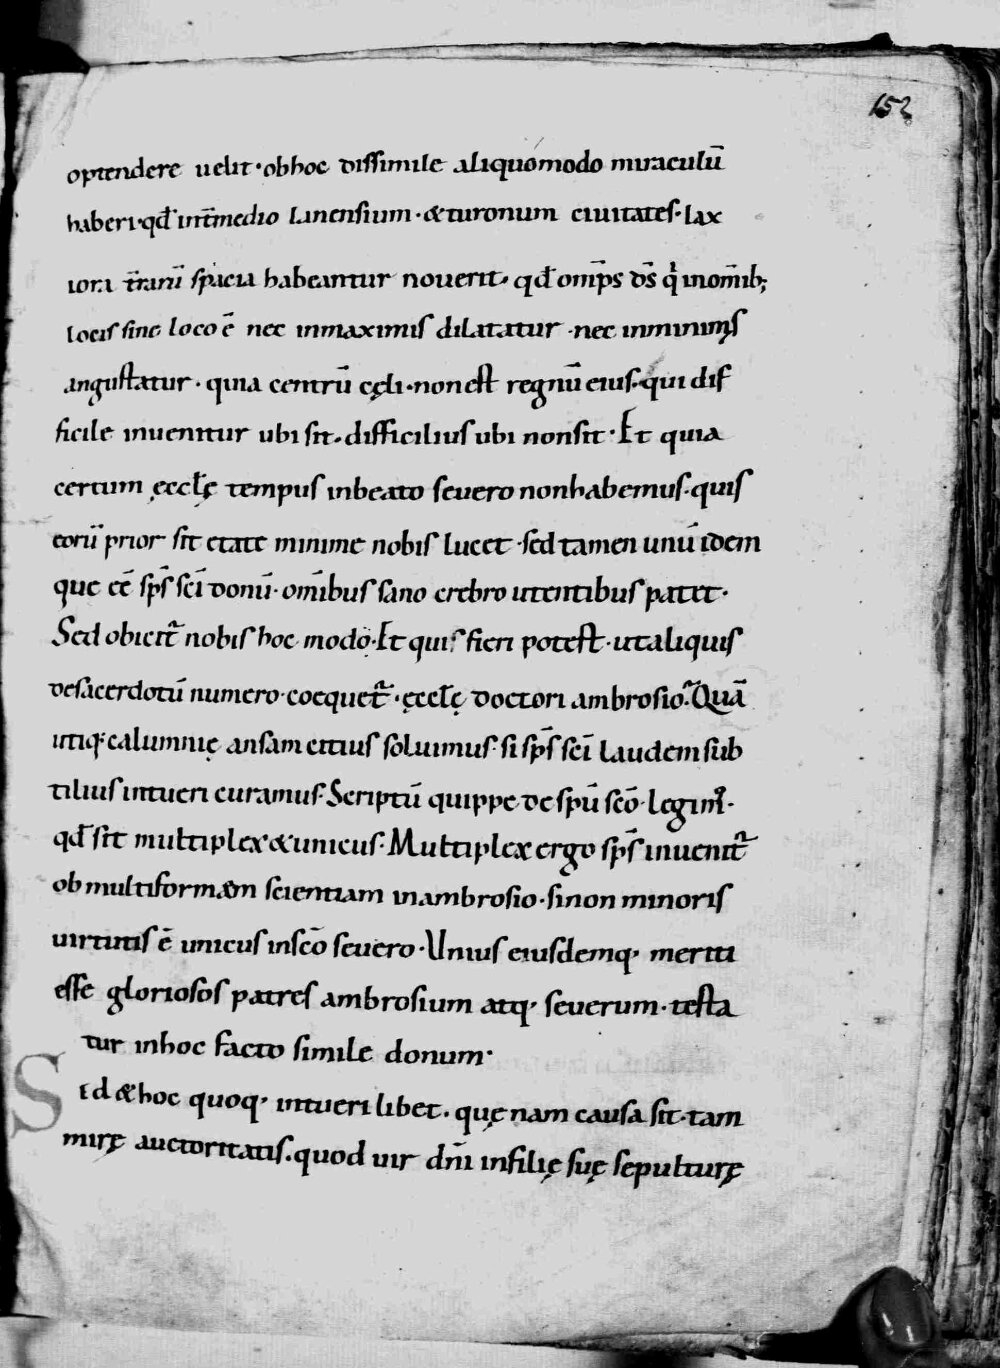 152
optendere uelit · obhoc dissimile aliquomodo miraculū
haberi · qđ int̄medio lanensium · &turonum ciuitates · lax
iora t̄rarū spacia habeantur nouerit · qđ om̄ps ds̄ qͥ inom̄ib;
locis sine loco ē nec inmaximis dilatatur · nec inminimis
angustatur · quia centrū cęli · non est regnū eius · qui dif
ficile inuenitur ubi sit · difficilius ubi nonsit · Et quia
certum ęccłę tempus inbeato seuero nonhabemus · quis
eorū prior sit etate minime nobis lucet · sed tamen unū idem
que eē sps̄ scī donū · om̄ibus sano cerebro utentibus patet ·
Sed obicit̄ nobis hoc modo · Et quis fieri potest · utaliquis
desacerdotū numero · coequet̄ · ęccłę doctori ambrosio · Quā
utiq; calumnię ansam citius soluimus · si sps̄ scī laudem sub
tilius intueri curamus · Scriptū quippe de spū scō · legim᷒ ·
qđ sit multiplex &unicus · Multiplex ergo sps̄ inuenit̄
ob multiformam scientiam inambrosio · sinon minoris
uirtutis ē unicus inscō seuero · Unius eiusdemq; meriti
esse gloriosos patres ambrosium atq; seuerum · testa
tur inhoc facto simile donum ·
Sed &hoc quoq; intueri libet · quę nam causa sit · tam
mirę auctoritatis · quod uir dn̄i infilię suę sepulturę